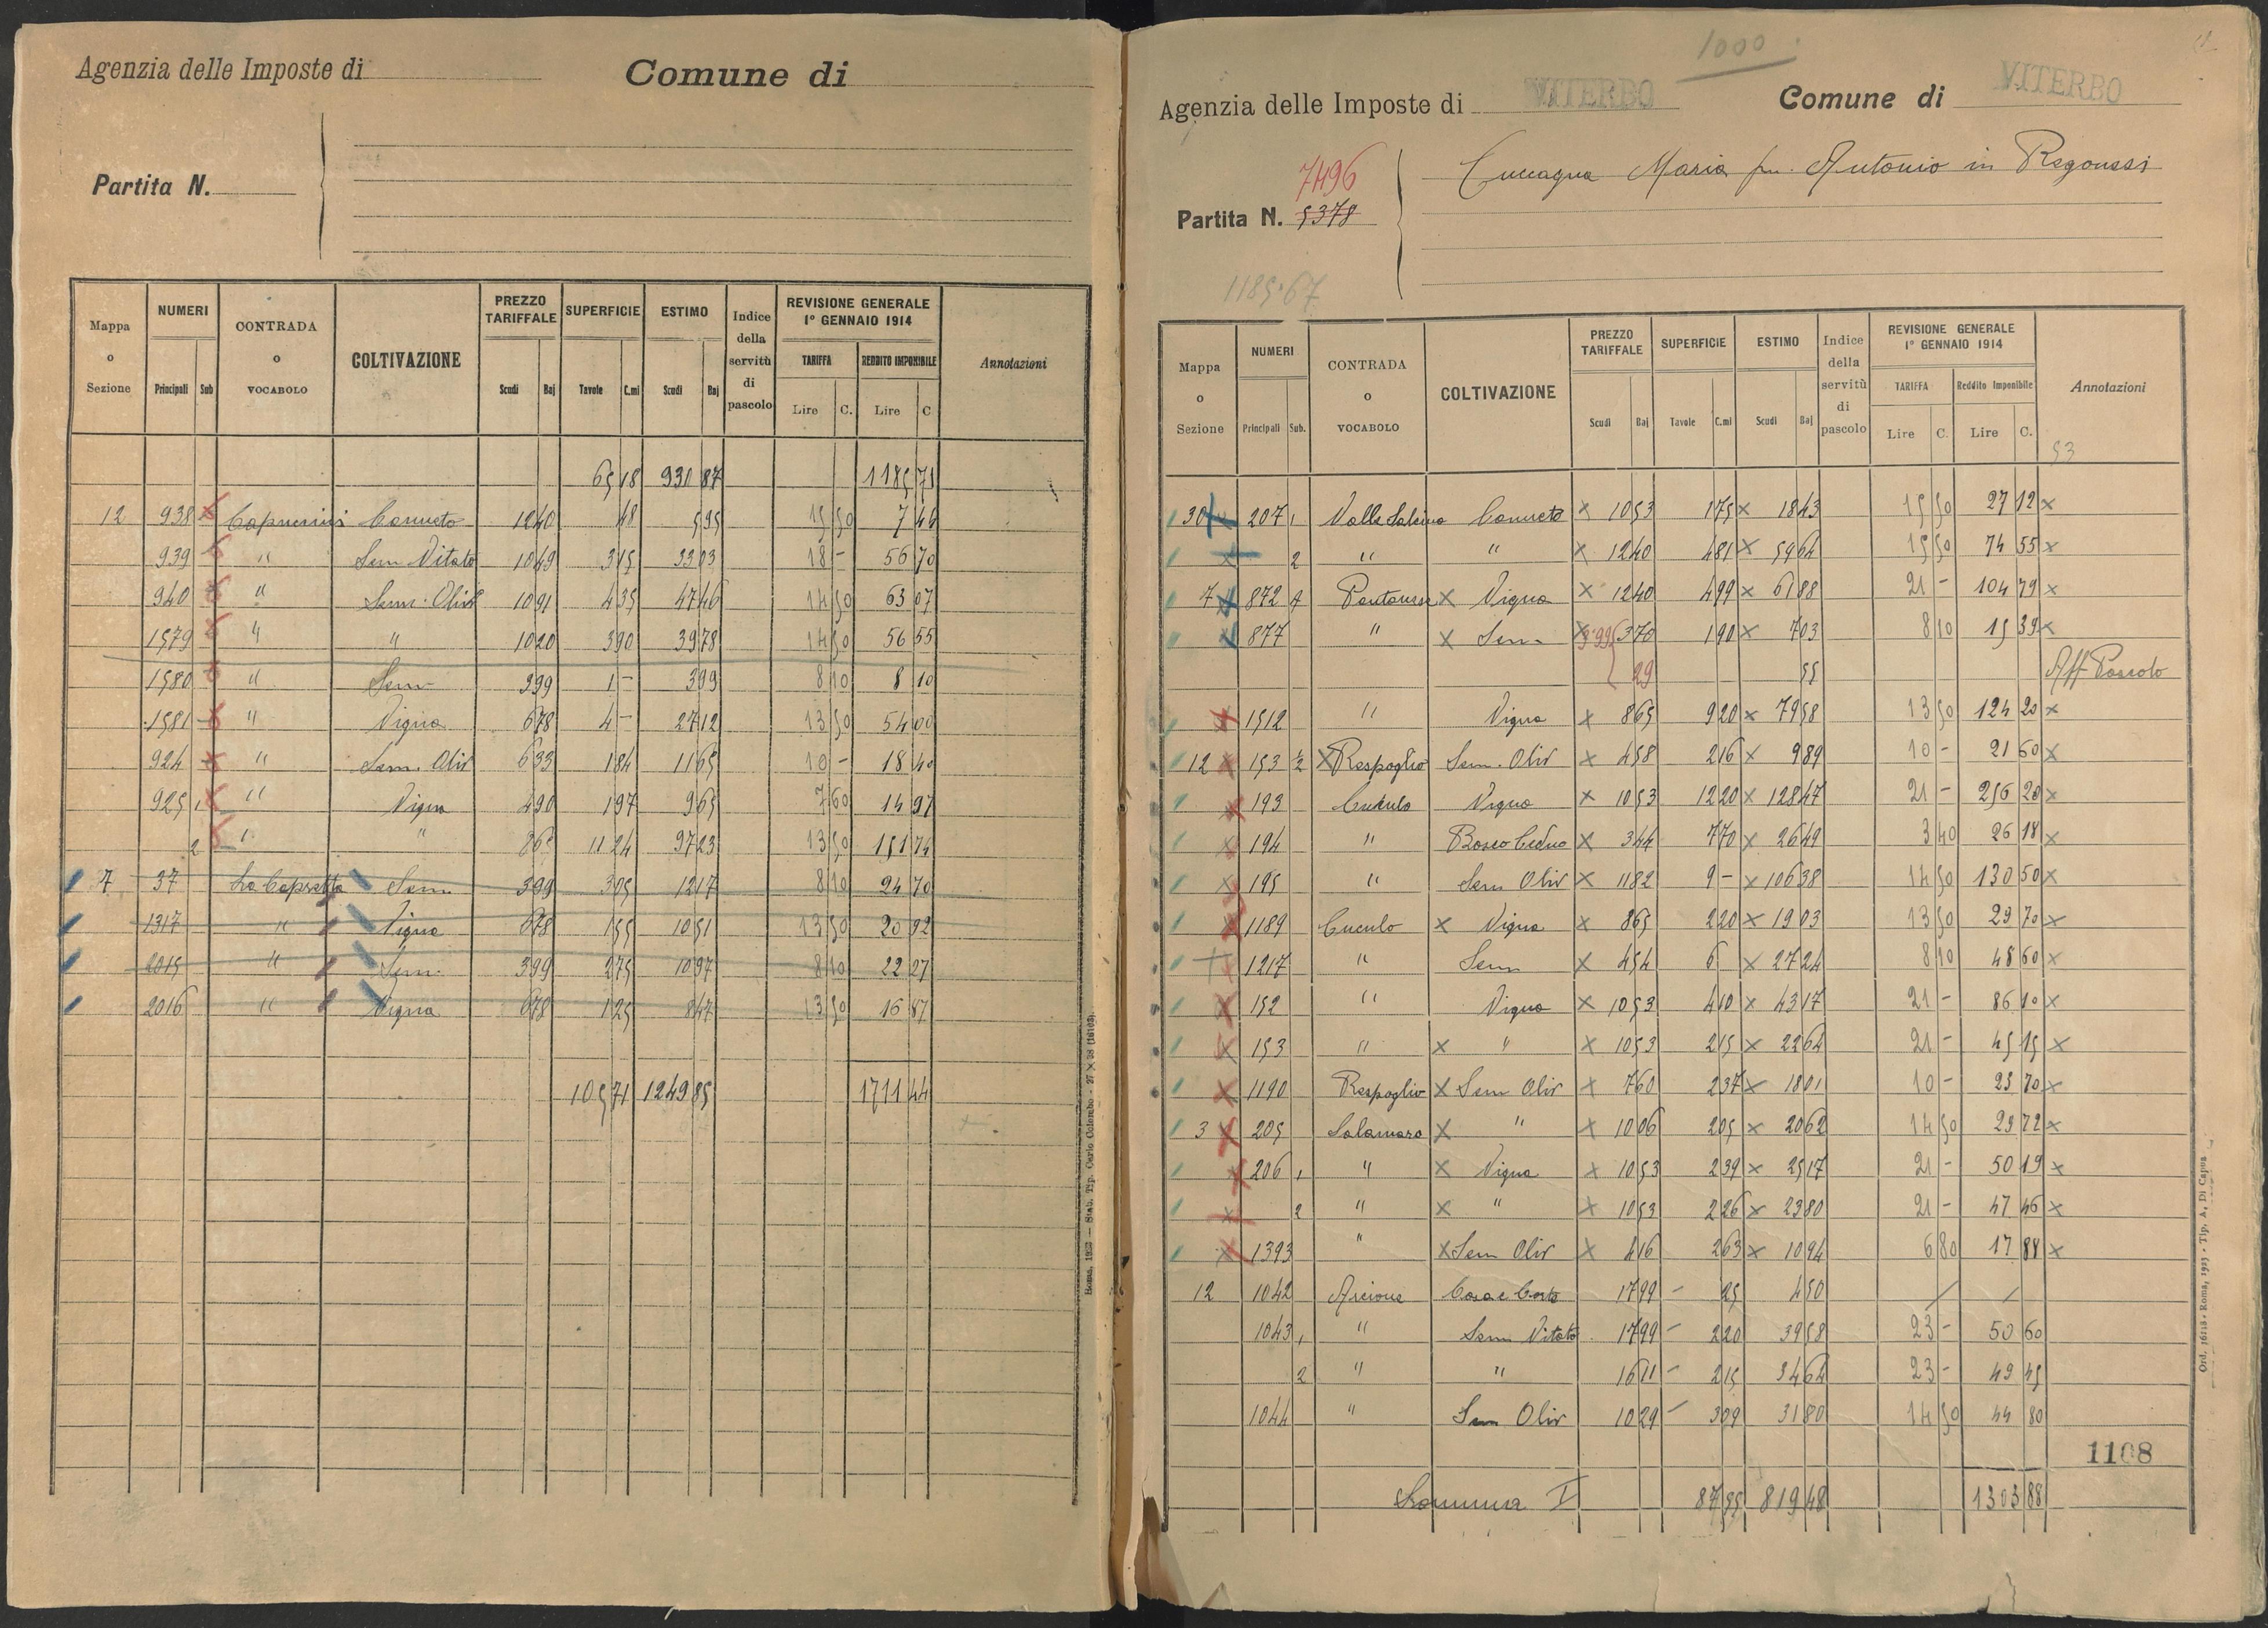 Agenzia delle Imposte di
Comune di
Partita N.
Mappa o Sezione | NUMERI Principali Sub | CONTRADA o VOCABOLO | COLTIVAZIONE | PREZZO TARIFFALE Scudi Baj | SUPERFICIE Tavole C.mi | ESTIMO Scudi Baj | Indice della servitù di pascolo | REVISIONE GENERALE 1° GENNAIO 1914 TARIFFA Lire C. REDDITO IMPONIBILE Lire C | Annotazioni
65 18 930 87 1185 71
12 938 Canneto 12 40 48 5 95 15 50 7 44
939 " Sem Vitato 10 49 3 15 33 03 18 - 56 70
940 " Sem. Oliv 10 91 4 35 47 46 14 50 63 07
1579 " " 10 20 3 90 39 78 14 50 56 55
1580 " Sem 3 99 1 - 3 99 8 10 8 10
1581 " Vigna 6 78 4 - 27 12 13 50 54 00
924 " Sem. Oliv 6 33 1 84 11 65 10 - 18 40
925 1 " Vigna 4 90 1 97 9 65 7 60 14 97
2 " " 8 65 11 24 97 23 13 50 151 74
7 37 La Capretta Sem 3 99 3 05 12 17 8 10 24 70
1317 " Vigna 6 78 1 55 10 51 13 50 20 92
2015 " Sem. 3 99 2 75 10 97 8 10 22 27
2016 " Vigna 6 78 1 25 8 47 13 50 16 87
105 71 1249 85 1711 44
Roma, 1923 — Stab. Tip. Carlo Colombo - 27 × 38 (16103)
1000
Agenzia delle Imposte di VITERBO
Comune di VITERBO
7496
Partita N. 5378
Cuccagna Maria fu Antonio in Ragonesi
1185.67
Mappa o Sezione | NUMERI Principali Sub. | CONTRADA o VOCABOLO | COLTIVAZIONE | PREZZO TARIFFALE Scudi Baj | SUPERFICIE Tavole C.mi | ESTIMO Scudi Baj | Indice della servitù di pascolo | REVISIONE GENERALE 1° GENNAIO 1914 TARIFFA Lire C. Reddito Imponibile Lire C. | Annotazioni
53
30 207 1 Canneto × 10 53 1 75 × 18 43 15 50 27 12 ×
2 " " × 12 40 4 81 × 59 64 15 50 74 55 ×
7 872 × Vigna × 12 40 4 99 × 61 88 21 - 104 79 ×
877 " × Sem × 3 70 1 90 × 7 03 8 10 15 39 ×
29 55
1512 " Vigna × 8 65 9 20 × 79 58 13 50 124 20 ×
12 153 ½ × Respoglio Sem. Oliv × 4 58 2 16 × 9 89 10 - 21 60 ×
193 Cuculo Vigna × 10 53 12 20 × 128 47 21 - 256 20 ×
194 " Bosco Ceduo × 3 44 7 70 × 26 49 3 40 26 18 ×
195 " Sem Oliv × 11 82 9 - × 106 38 14 50 130 50 ×
1189 Cuculo × Vigna × 8 65 2 20 × 19 03 13 50 29 70 ×
1217 " Sem × 4 54 6 × 27 24 8 10 48 60 ×
152 " Vigna × 10 53 4 10 × 43 17 21 - 86 10 ×
153 " × " × 10 53 2 15 × 22 64 21 - 45 15 ×
1190 Respoglio × Sem Oliv × 7 60 2 37 × 18 01 10 - 23 70 ×
3 205 Salamaro × " × 10 06 2 05 × 20 62 14 50 29 72 ×
206 1 " × Vigna × 10 53 2 39 × 25 17 21 - 50 19 ×
2 " × " × 10 53 2 26 × 23 80 21 - 47 46 ×
1393 " × Sem Oliv × 4 16 2 63 × 10 94 6 80 17 88 ×
12 1042 Arcione Casa e Corte 17 99 - 25 4 50 / /
1043 1 " Sem Vitato 17 99 - 2 20 39 58 23 - 50 60
2 " " 16 11 - 2 15 34 64 23 - 49 45
1044 " Sem Oliv 10 29 - 3 09 31 80 14 50 44 80
1108
Somma I 87 95 819 48 1303 88
Ord. 16118 - Roma, 1923 - Tip. A. Di Capua